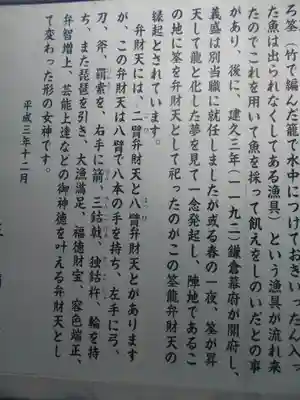 ろ筌(竹で編んだ籠で水中につけておきいったん入っ
た魚は出られなくしてある漁具)という漁具が流れ来
たのでこれを用いて魚を採って飢えをしのいだとの事
があり、後に、建久三年(一一九二)鎌倉幕府が開府し、
義盛は別当職に就任しましたが或る春の一夜、筌が昇
天して龍と化した夢を見て一念発起し、陣地であるこ
の地に筌を弁財天として祀ったのがこの筌龍弁財天の
縁起とされています。
弁財天には、二臂弁財天と八臂弁財天とがあります
が、この弁財天は八臂で八本の手を持ち、左手に弓、
刀、斧、羂索を、右手に箭、三鈷戟、独鈷杵、輪を持
ち、また琵琶を引き、大漁満足、福徳財宝、容色端正、
弁智増上、芸能上達などの御神徳を叶える弁財天とし
て変わった形の女神です。
平成三年十二月